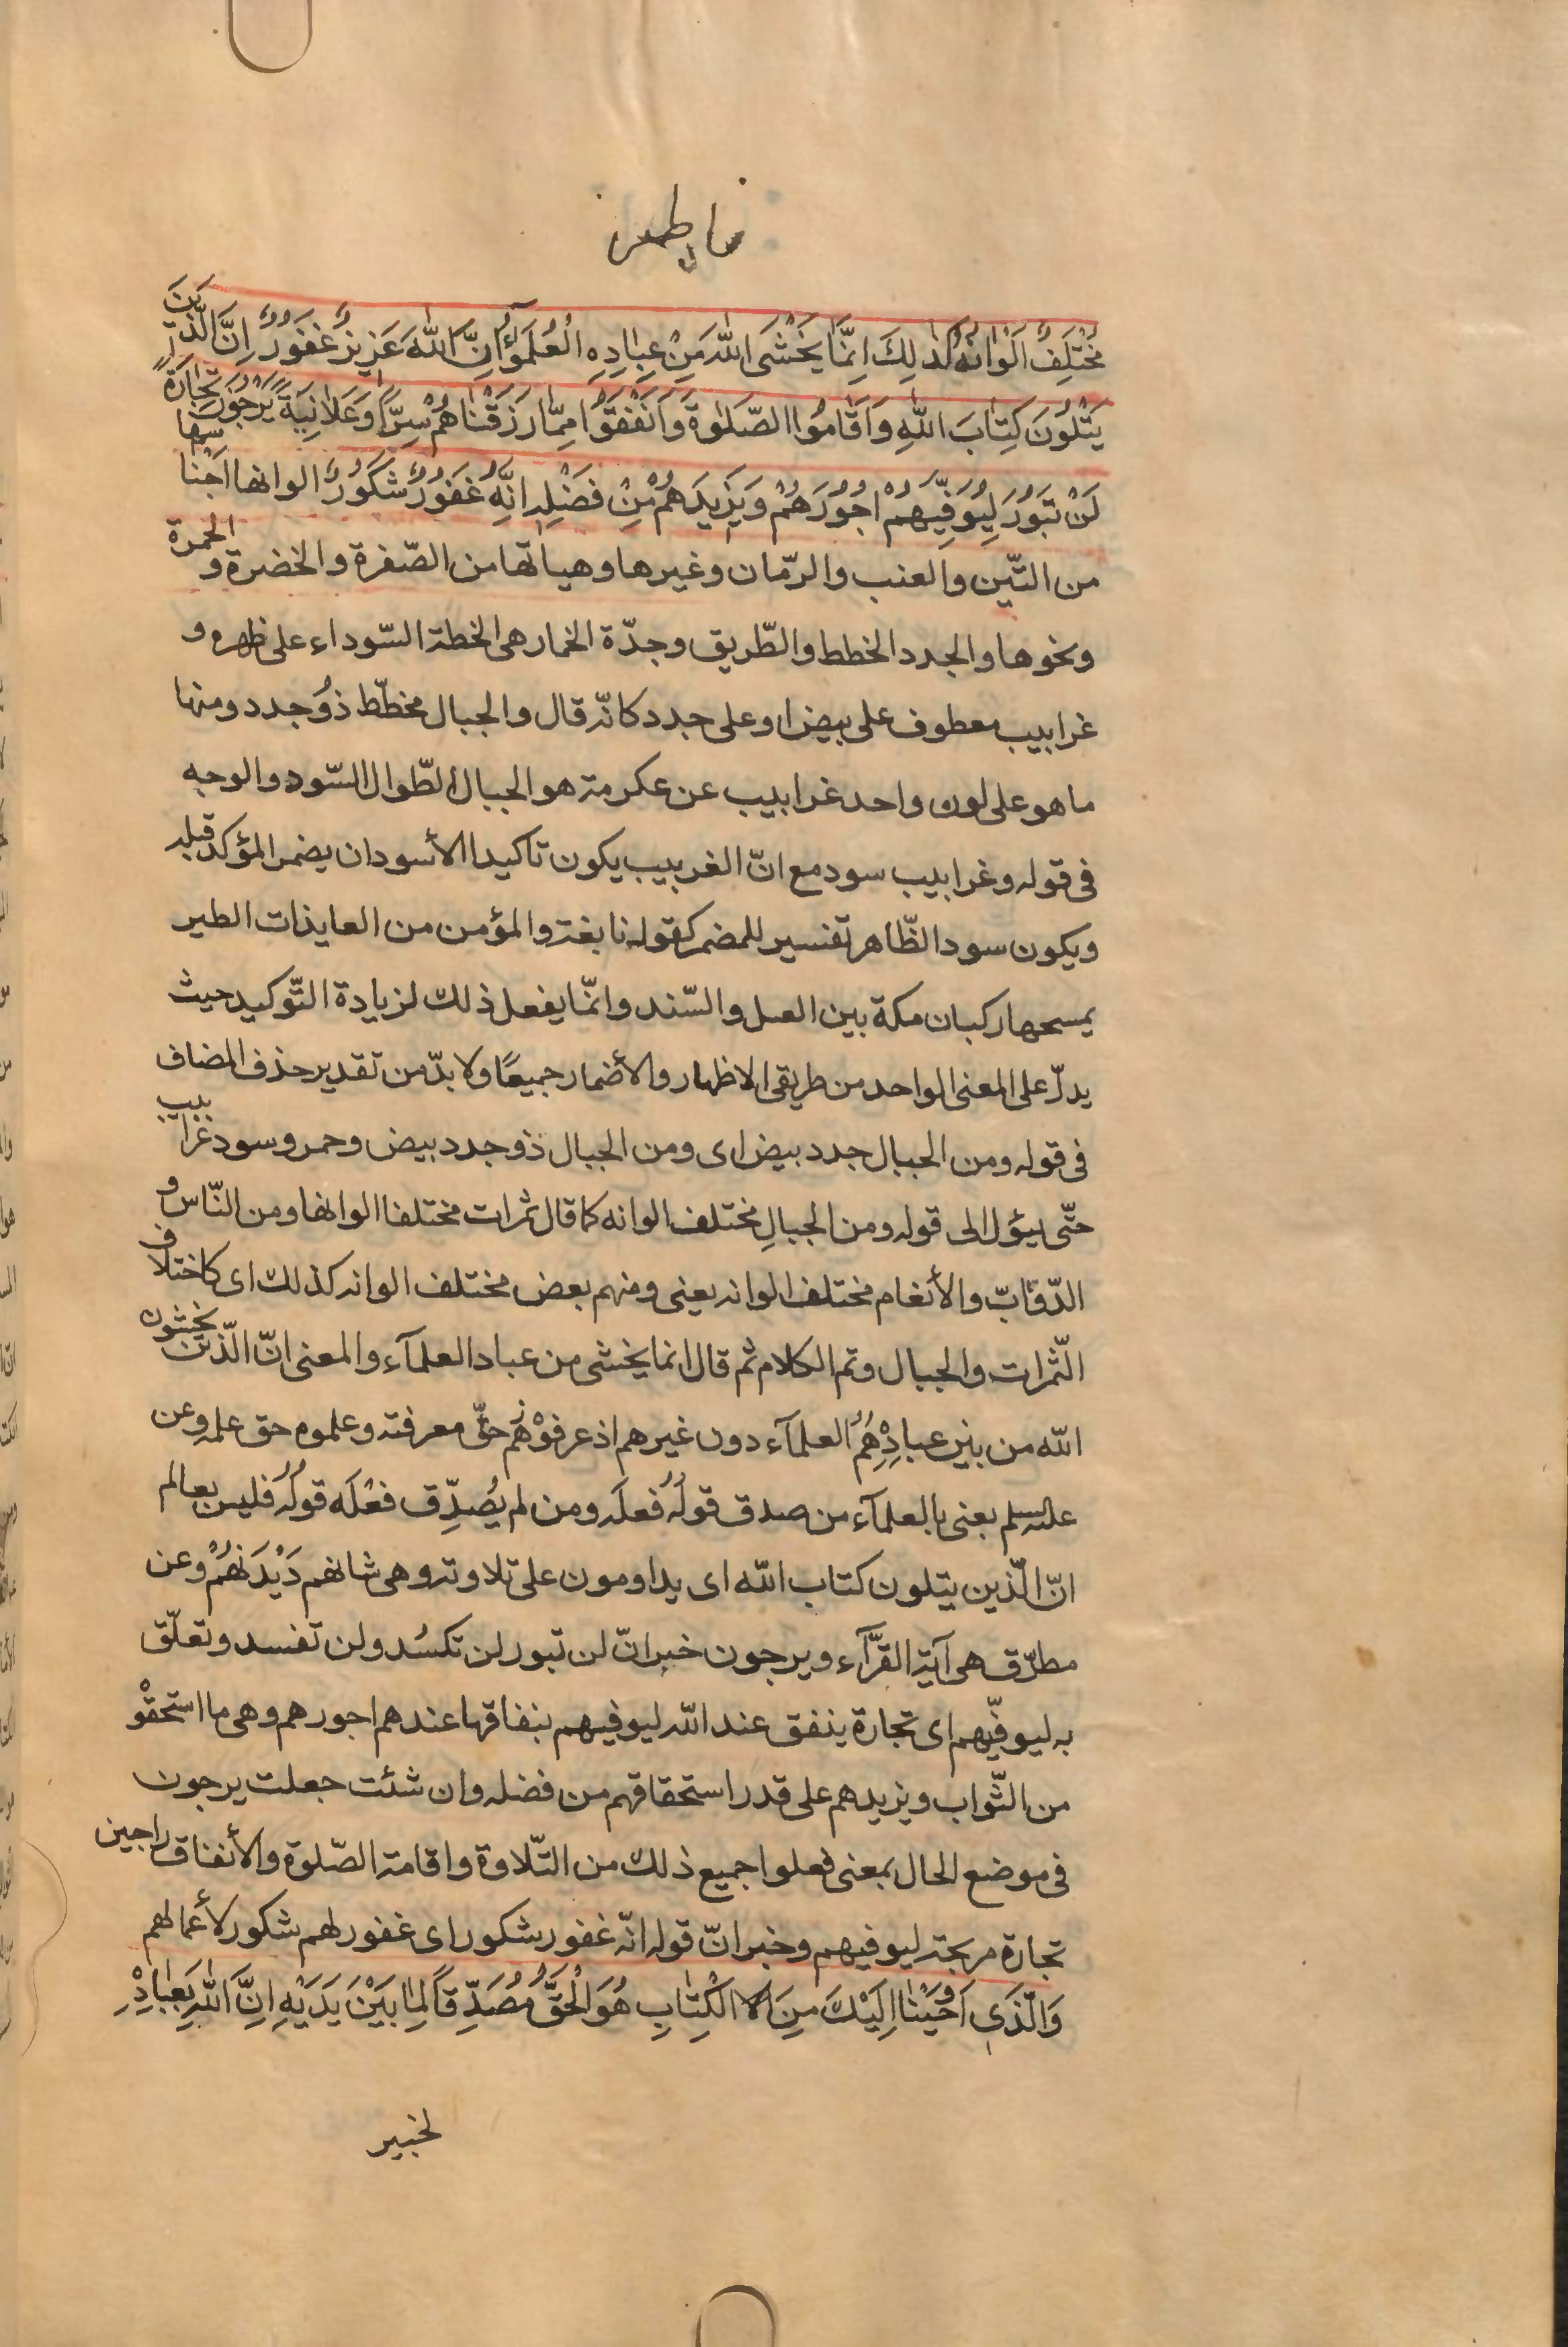 فاطر
مُخْتَلِفٌ اَلْوٰانُهُ كَذٰلِكَ اِنَّمٰا يَخْشَى اللّٰهَ مِنْ عِبٰادِهِ الْعُلَمٰٓؤُا اِنَّ اللّٰهَ عَزِيزٌ غَفُورٌ اِنَّ الَّذِينَ
يَتْلُونَ كِتٰابَ اللّٰهِ وَاَقٰامُوا الصَّلٰوةَ وَاَنْفَقُوا مِمّٰا رَزَقْنٰاهُمْ سِرًّا وَعَلٰانِيَةً يَرْجُونَ تِجٰارَةً
لَنْ تَبُورَ لِيُوَفِّيَهُمْ اُجُورَهُمْ وَيَزِيدَهُمْ مِنْ فَضْلِهِ اِنَّهُ غَفُورٌ شَكُورٌ الوانها اجْناسها
من التّين والعنب والرّمان وغيرها وهياٰتها من الصّفرة والخضرة والحمرة
ونحوها والجدد الخطط والطّريق وجدّة الخمار هى الخطة السّوداء على ظهره و
غرابيب معطوف على بيض او على جدد كانّه قال والجبال مخطّط ذوُ جدد ومنها
ما هو على لون واحد غرابيب عن عكرمة هو الجبال الطّوال السّود والوجه
فى قوله وغرابيب سود مع انّ الغربيب يكون تاكيدا الأسود ان يضمر المؤكد قبله
ويكون سود الظّاهر تفسير للمضمر كقوله نابغة والمؤمن من العايذات الطير
يمسحها ركبان مكة بين العسل والسّند وانّما يفعل ذلك لزيادة التّوكيد حيث
يدلّ على المعنى الواحد من طريقى الاظهار والأضمار جميعًا ولا بدّ من تقدير حذف المضاف
فى قوله ومن الجبال جدد بيض اى ومن الجبال ذو جدد بيض وحمر وسود غرابيب
حتّى يئول الى قوله ومن الجبالِ مختلف الوانه كما قال ثمرات مختلفا الوانها ومن النّاس و
الدّوٰابّ والأنعام مختلف الوانه يعنى ومنهم بعض مختلف الوانه كذلك اى كاختلاف
الثّمرات والجبال وتم الكلام ثم قال انما يخشى من عباد العلمآء والمعنى انّ الّذين يخشون
اللّه من بين عبادِهِ هُمُ العلمآء دون غيرهم اذ عرفوْهم حقَّ معرفته وعلموه حق علمه وعن
عليه السلم يعنى بالعلمآء من صدق قولُهُ فُعلَه ومن لم يُصدِّق فعْلَه قولُه فليس بعالم
انّ الّذين يتلون كتاب اللّه اى يداومون على تلاوته وهى شانهم دَيْدَنَهُمْ وعن
مطرّف هى آية القرّآء ويرجون خبر انّ لن تبور لن تكسُد ولن تفسد وتعلّق
به ليوفّيهم اى تجارة ينفق عند اللّه ليوفيهم بنفاقها عندهم اجورهم وهى ما استحقْو
من الثّواب ويزيدهم على قدر استحقاقهم من فضله وان شئت جعلت يرجون
فى موضع الحال بمعنى فعلوا جميع ذلك من التّلاوة واقامة الصّلوة والأنفاق راجين
تجارة مربحة ليوفيهم وخبر انّ قوله انّه غفور شكور اى غفور لهم شكور لأعمالهم
وَالَّذَى اَوْحَيْنٰا اِلَيْكَ مِنَ الْكِتٰابِ هُوَ الْحَقُّ مُصَدِّقًا لِمٰا بَيْنَ يَدَيْهِ اِنَّ اللّٰهَ بِعِبٰادِهِ
لخبير